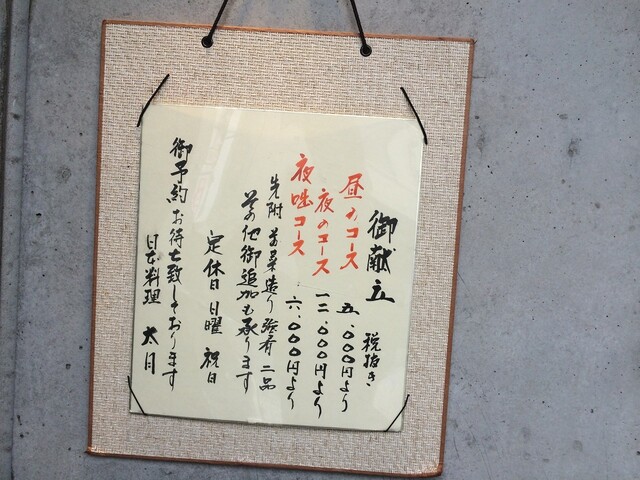 御献立 税抜き
昼のコース 五、000円より
夜のコース 一二、000円より
夜咄コース 六、000円より
先附 前菜 造り 強肴 二品
その他御追加も承ります
定休日 日曜 祝日
御予約お待ち致しております
日本料理 太月